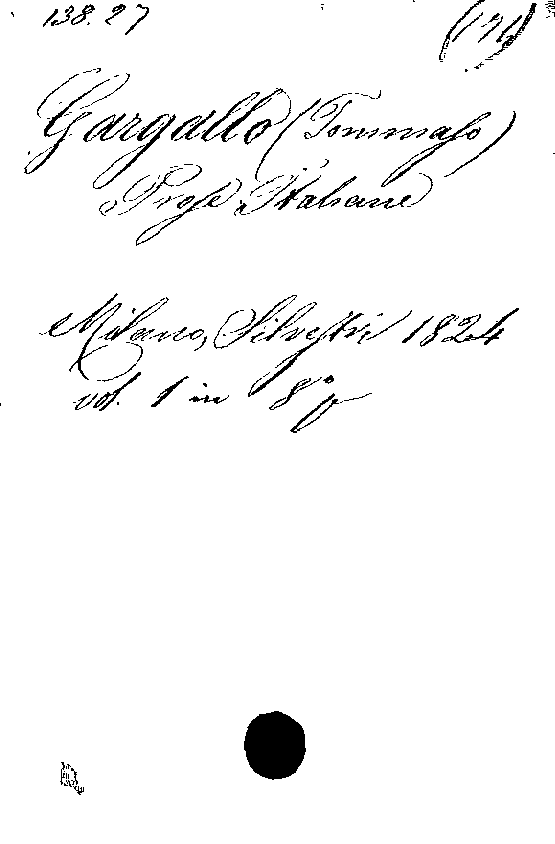 138.27
Gargallo (Tommaso)
Prose Italiane
Milano, Silvestri 1824
vol. 1 in 8° p